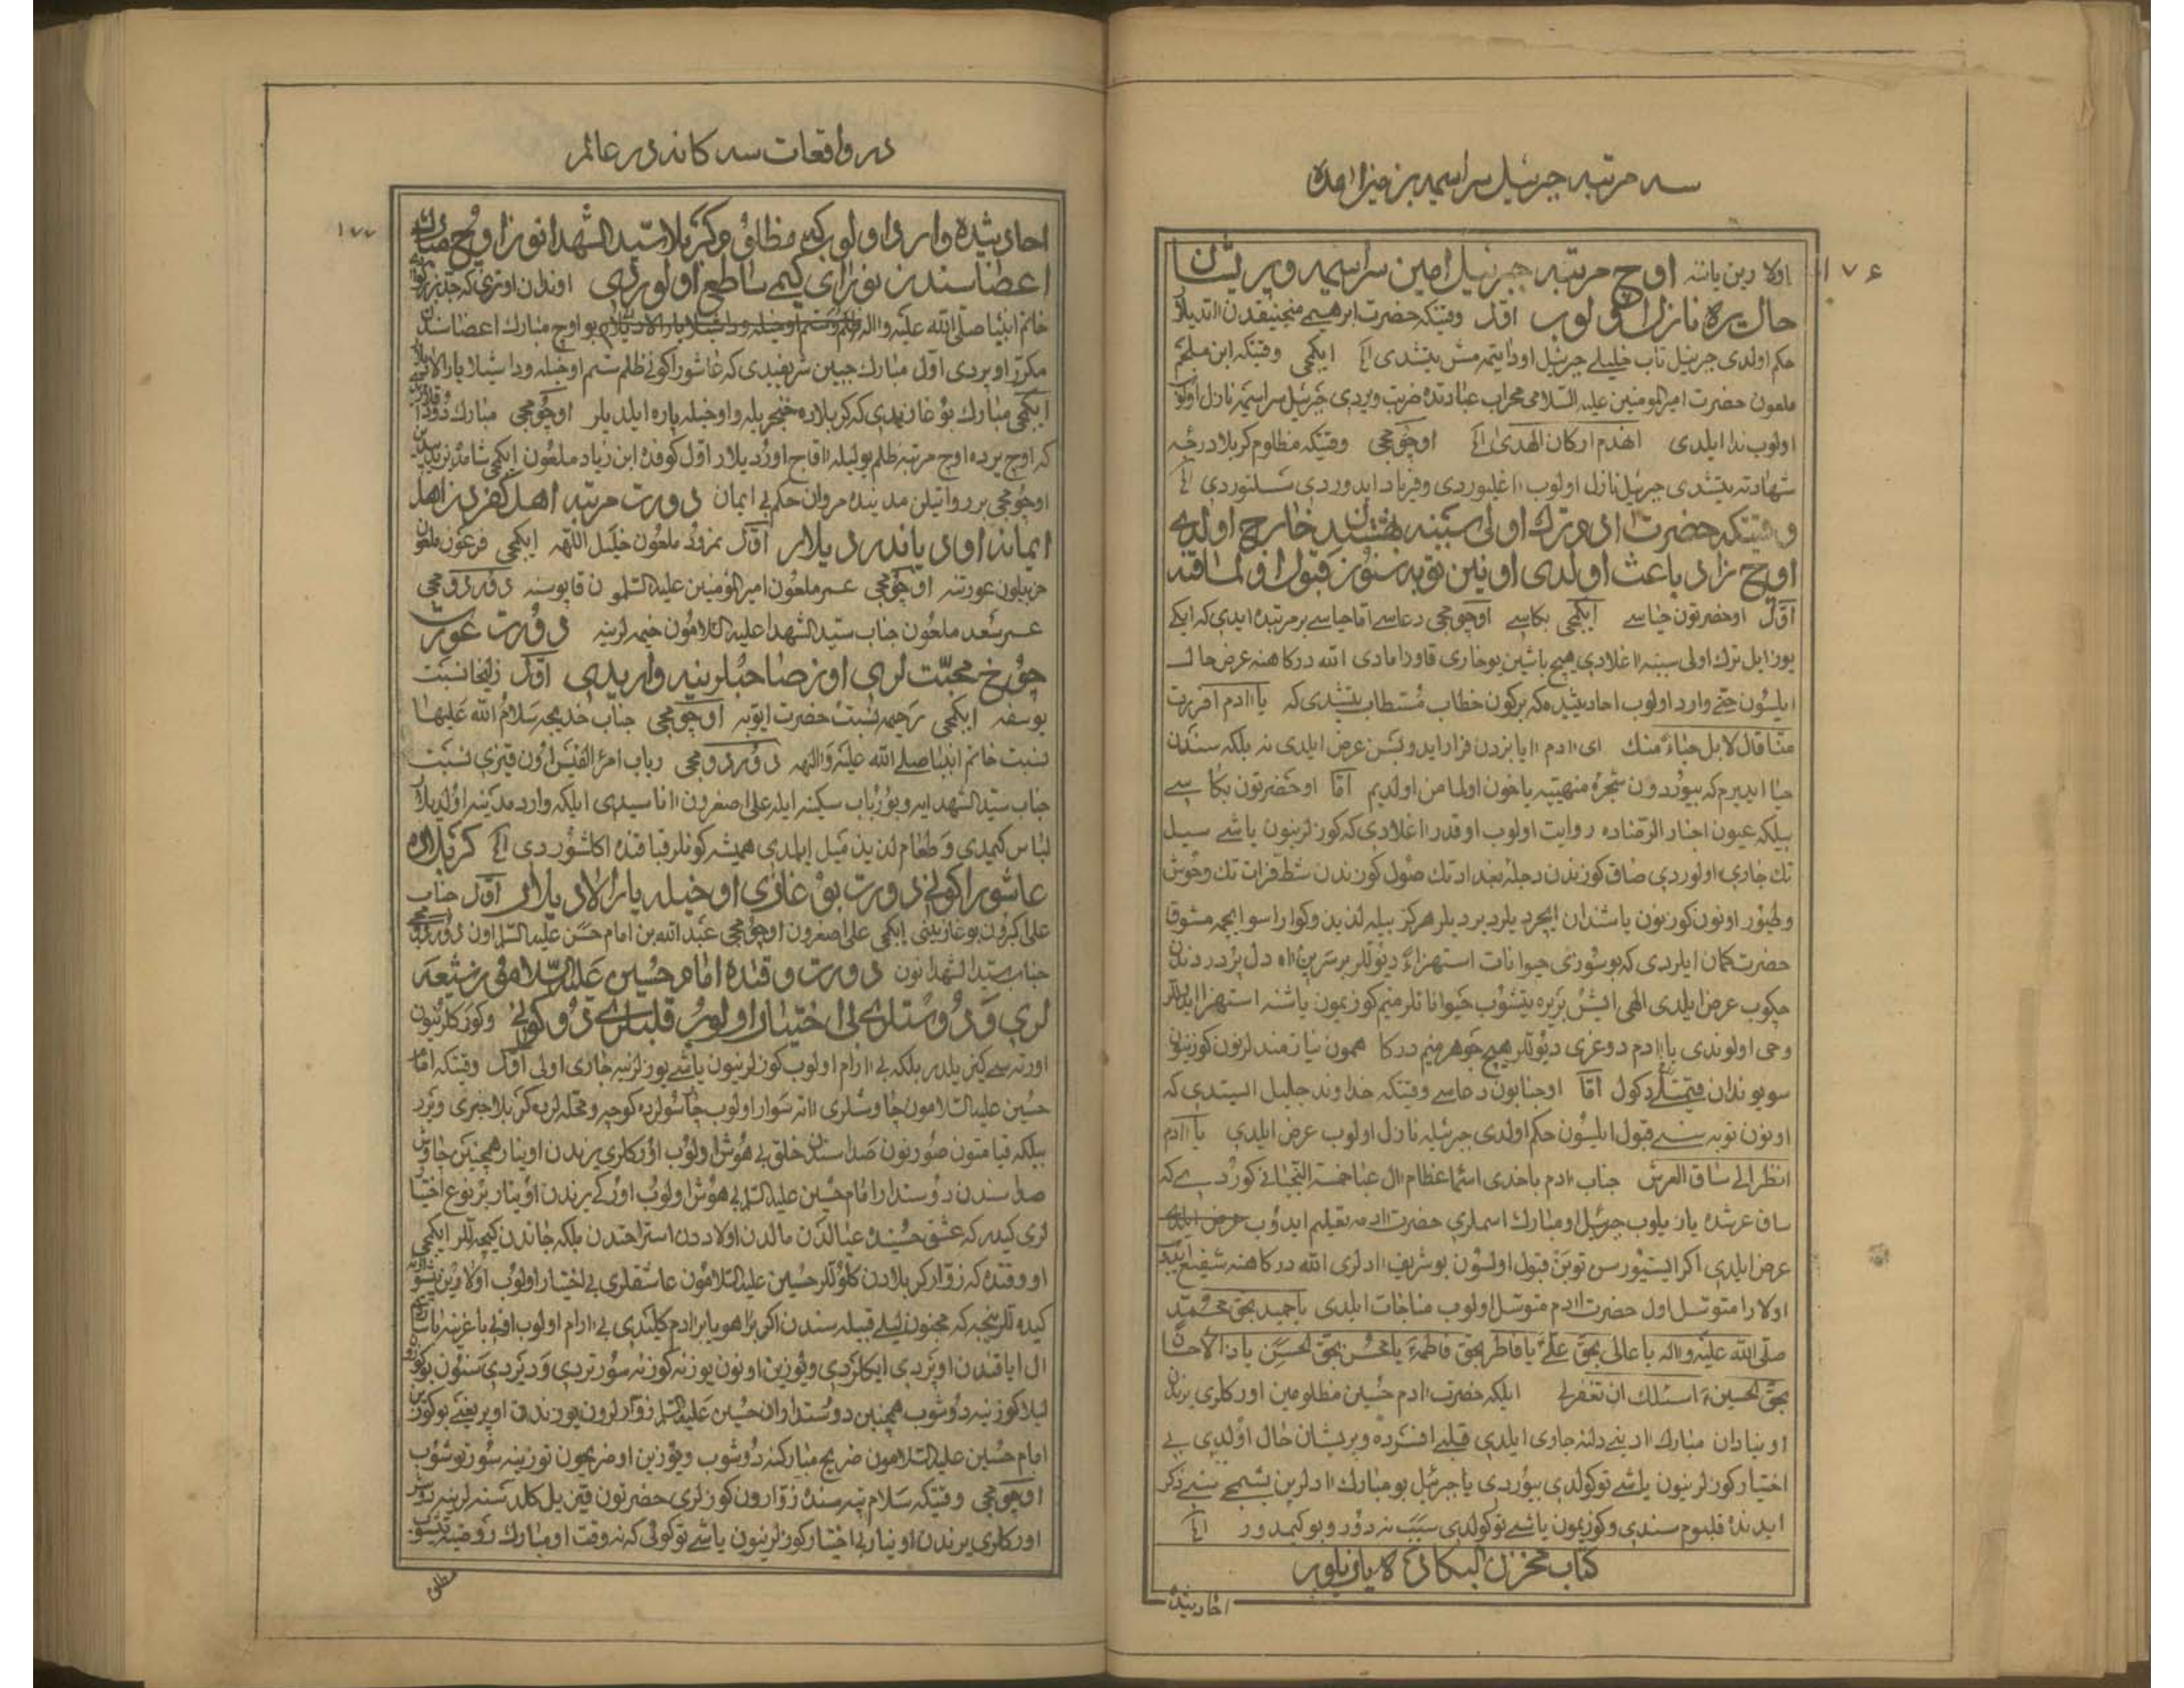 سه مرتبه جبرئیل سراسیمه بزمین آمده
۱۷۶
اولا دین یاتنه اوچ مرتبه جبرئیل امین سراسیمه و پریشان
حال یره نازل اولوب اوّل وقتیکه حضرت ابرهیمی منجنیقدن آتدیلار
حکم اولدی جبرئیل تاب خلیلی جبرئیل اودا یتشدی الخ ایکمجی وقتیکه ابن ملجم
ملعون حضرت امیرالمومنین علیه السلامی محراب عبادتده ضربت ویردی جبرئیل سراسیمه نازل اولوب
اولوب ندا ایلدی انهدم ارکان الهدی الخ اوچومجی وقتیکه مظلوم کربلا درجه
شهادته یتشدی جبرئیل نازل اولوب آغلیوردی و فریاد ایدوردی الخ
وقتیکه حضرت ادم ترک اولی سببنه بهشتدن خارج اولدی
اوچ زاد باعث اولدی اونین توبه سنون قبول اولماقنه
اوّل اوحضرتون حیاسی ایکمجی بکاسی اوچومجی دعاسی اما حیاسی بر مرتبده ایدی که ایکی
یوز ایل ترک اولی سببنه آغلادی هیچ باشین یوخاری قاوزامادی الله درگاهنه عرض حال
ایلسون حتی وارد اولوب احادیثده که برکون خطاب مستطاب یتشدی که یا آدم افررت
منّا قال لا بل حیاءً منک ای آدم آیا بزدن فرار ایدوبسن عرض ایلدی نه بلکه سندن
حیا ایدیرم که بیوردون شجرۀ منهیّیه یاخون اولما من اولدیم امّا اوحضرتون بکاسی
بیلکه عیون اخبار الرضاده روایت اولوب اوقدر آغلادی که کوزلرینون یاشی سیل
تک جاری اولوردی صاق کوزندن دجله بغداد تک صول کوزندن شط فرات تک وحوش
و طیور اونون کوزنون یاشندان ایچردیلر دیردیلر هرکز بیله لذیذ و کوارا سو ایچمه مشوق
حضرت کمان ایلردی که بو سوزی حیوانات استهزاءً دیوللر بر سرین آه دل پر دردندن
چکوب عرض ایلدی الهی ایشم بریره یتشوب حیوانات لر منیم کوزیمون یاشنه استهزا ایدللر
وحی اولوندی یا آدم دوغری دیوللر هیچ جوهر منیم درکا همون نیازمند لرنون کوزینون
سویوندان قیمتلی دکول امّا اوجنابون دعاسی وقتیکه خداوند جلیل ایستدی که
اونون توبه سنی قبول ایلیون حکم اولدی جبرئیله نازل اولوب عرض ایلدی یا آدم
انظر الی ساق العرش جناب آدم باخدی اسماء عظام آل عبا خمسة النجبانی کوردی که
ساق عرشده یازیلوب جبرئیل اومبارک اسملری حضرت آدمه تعلیم ایدوب
عرض ایلدی اکر ایستیورسن توبن قبول اولسون بو شریف آدلری الله درکاهنه شفیع ایت
اولارا متوسل اول حضرت آدم متوسل اولوب مناجات ایلدی یا حمید بحق محمّد
صلی الله علیه وآله یا عالی بحق علی یا فاطر بحق فاطمة یا محسن بحق الحسن یا ذا الاحسان
بحق الحسین اسئلک ان تغفرلی ایلکه حضرت آدم حسین مظلومین اورکلری یرندن
اوینادان مبارک آدینی دلنه جاری ایلدی قلبی افسرده و پریشان حال اولدی بی
اختیار کوزلرینون یاشی توکولدی بیوردی یا جبرئیل بو مبارک آدلرین بشمجی سنی ذکر
ایدنده قلبوم سندی و کوزیمون یاشی توکولدی سبب نه دور و بو کیمدور الخ
کتاب مخزن البکاده یازیلوب
احادیثده
در واقعات سه کانه در عالم
۱۷۷
احادیثده وارد اولوب که مظلوم کربلا سیّد الشهدانون اوچ مبارک
اعضاسندن نوراری کیمی ساطع اولوردی اوندان اوتری که جدّ بزرگوار
خاتم انبیا صلّی الله علیه وآله بو اوچ مبارک اعضاسندن
مکرّر اوپردی اوّل مبارک جبین شریفیدی که عاشورا کونی ظلم ستم اوخیله و داشیلا یارالادیلار
ایکمجی مبارک بوغازیدی که کربلاده خنجریله و اوخیله پاره ایلدیلر اوچومجی مبارک دوداقلاریدی
که اوچ یرده اوچ مرتبه ظلم یولیله آقاج اوردیلار اوّل کوفده ابن زیاد ملعون ایکمجی شامده یزید
اوچومجی بر روایتیلن مدینیده مروان حکم بی ایمان دورت مرتبه اهل کفردن اهل
ایمانن اوی یاندردیلار اوّل نمرود ملعون خلیل اللهه ایکمجی فرعون ملعون
حزبیلون عورتنه اوچومجی عمر ملعون امیرالمومنین علیه السلامون قاپوسنه دوردومجی
عمر سعد ملعون جناب سیّد الشهدا علیه السلامون خیمه لرینه دورت عورت
چوخ محبّت لری اوز صاحبلرینه واریدی اوّل زلیخا نسبت
یوسفه ایکمجی رحیمه نسبت حضرت ایّوبه اوچومجی جناب خدیجه سلام الله علیها
نسبت خاتم انبیا صلی الله علیه وآلهه دوردومجی رباب امرء القیس اون قیزی نسبت
جناب سیّد الشهدایه و بو رباب سکینه ایله علی اصغرون آناسیدی ایلکه وارد مدینه اولدیلار
لباس کیمدی و طعام لذیذ میل ایلمدی همیشه کونلر قباقنده اکلشوردی الخ کربلاده
عاشورا کونی دورت بوغازی اوخیله یارالادیلار اوّل جناب
علی اکبرون بوغازینی ایکمجی علی اصغرون اوچومجی عبد الله بن امام حسن علیه السلاماون دوردومجی
جناب سیّد الشهدانون دورت وقتده امام حسین علیه السلامون شیعه
لری و دوستلری بی اختیار اولور قلبلری دوکونی و کوزکلرنیون
اورته سی کیزیلدر بلکه بی آرام اولوب کوزلرینون یاشی یوزلرینه جاری اولی اوّل وقتیکه امام
حسین علیه السلامون چاوشلری آته سوار اولوب چاشولرده کوچه و محلّه لرده کربلا خبری ویرر
بیلکه قیامتون صورنون صداسندن خلق بی هوش اولوب اورکلری یرندن اوینار همچنین چاوش
صداسندن دوستدار امام حسین علیه السلام بی هوش اولوب اورکی یرندن اوینار بر نوع اختیار
لری کیدر که عشق حسینده عیالدن مالدن اولاددن استراحتدن بلکه جاندن کیچللر ایکمجی
او وقتده که زوّار کربلادن کلوللر حسین علیه السلامون عاشقلری بی اختیار اولوب اولارین پیشوازینه
کیده للر نیجه که مجنون لیلی قبیله سندن اکر بر آهو یا بر آدم کلیدی بی آرام اولوب اونی باغرینه باسار
ال ایاقندن اوپردی ایکلردی و یوزین اونون یوزنه کوزنه سورتردی و دیردی سنون بو کوزون
لیلا کوزنیه دوشوب همچنین دوستداران حسین علیه السلام زوّارلرون یوزندن اوپر یعنی بو کوزون
امام حسین علیه السلامون ضریح مبارکنه دوشوب و یوزین او ضریحون توزینه سورتوشوب
اوچومجی وقتیکه سلام تپه سنده زوّارون کوزلری حضرتون قیزیل کلدسته لرینه دوشر
اورکلری یرندن اوینار بی اختیار کوزلرینون یاشی توکولی که نه وقت اومبارک روضیه یتشوب
مظلوم